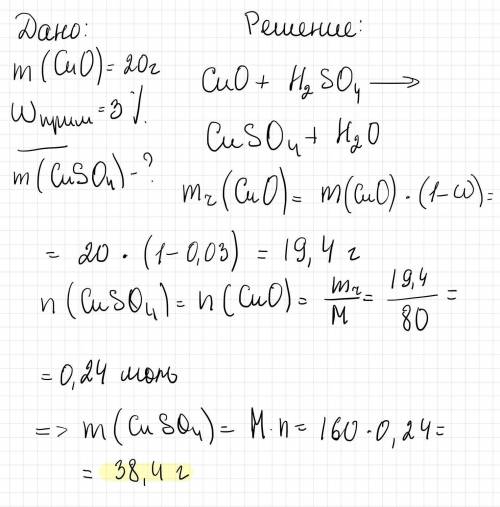 Дано:
m(CuO)=20г
Wприм=3%.
m(CuSO₄)-?
Решение:
CuO + H₂SO₄ ⟶
CuSO₄ + H₂O
mч(CuO) = m(CuO)·(1-ω)=
= 20 · (1-0,03) = 19,4 г
n(CuSO₄) = n(CuO) = mч/M = 19,4/80 =
= 0,24 моль
=> m(CuSO₄) = M·n = 160·0,24=
= 38,4 г